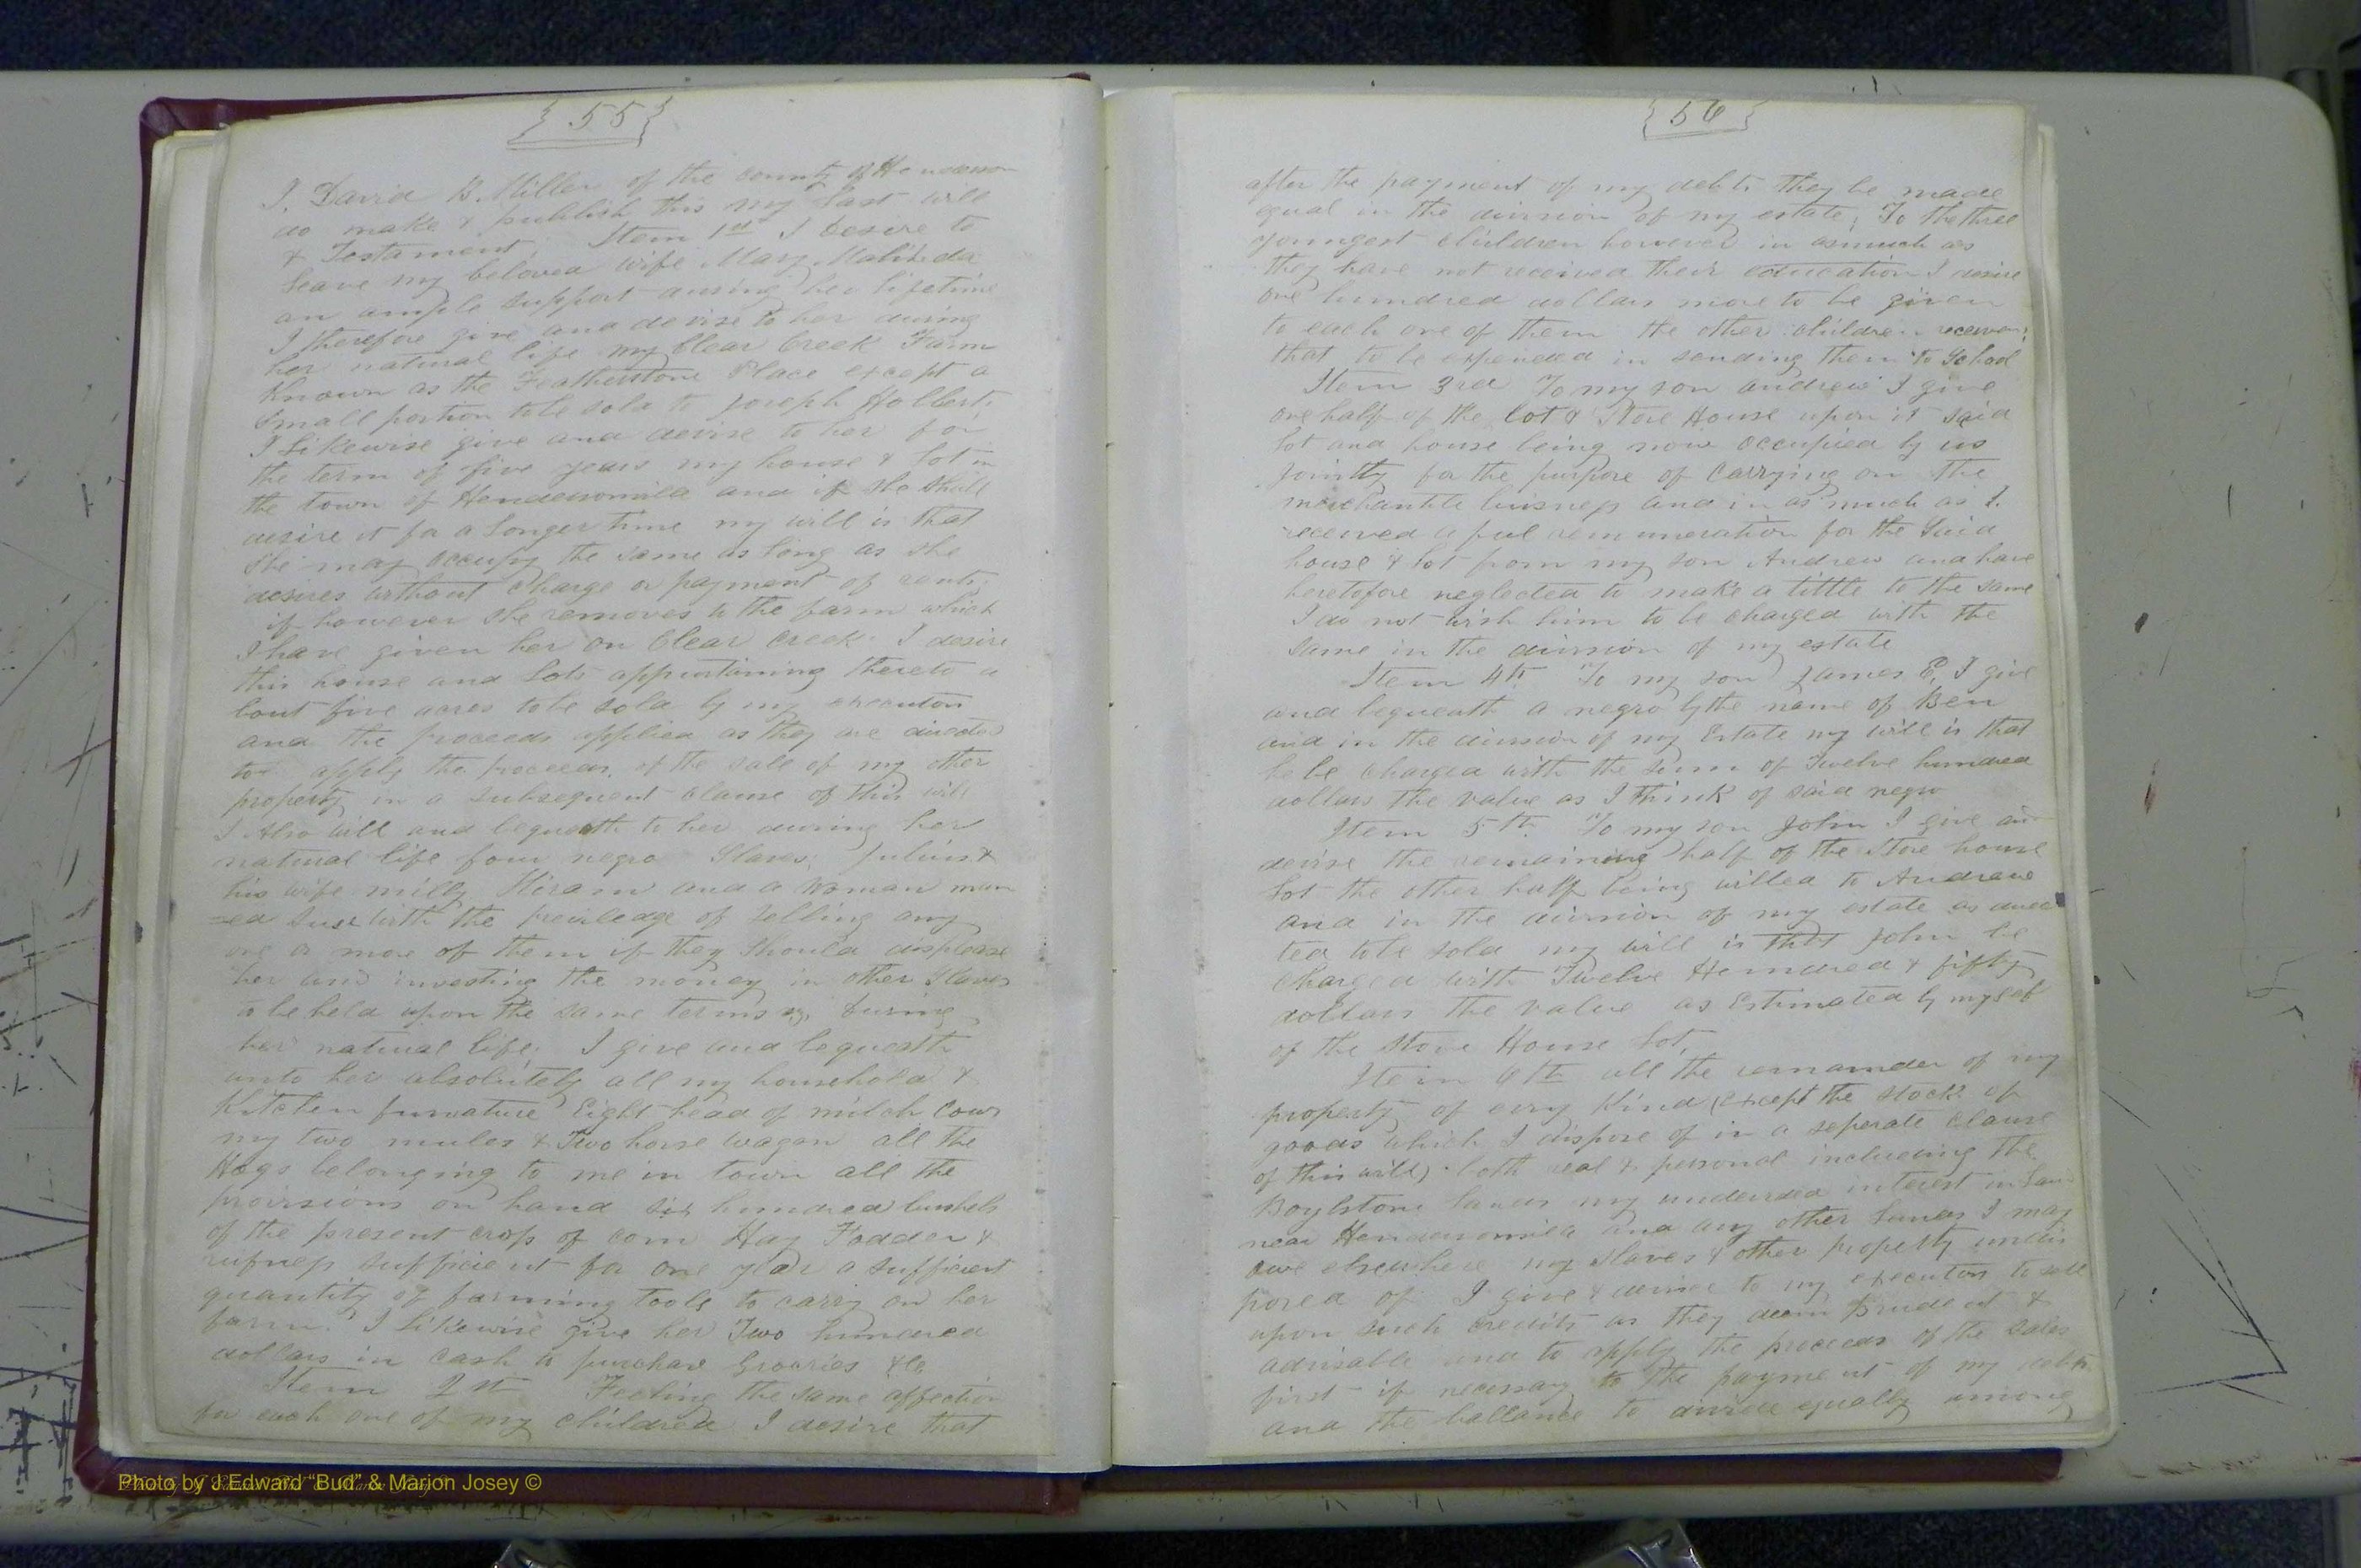 { 55 }
I. David B. Miller of the county of Henderson
do make & publish this my Last will
& Testament. Item 1st I Desire to
Leave my beloved wife Mary Malinda
an ample support during her lifetime
I therefore give and devise to her during
her natural life my Clear Creek Farm
Known as the Featherstone Place except a
Small portion to be sold to Joseph Holbert,
I Likewise give and devise to her for
the term of five years my house & lot in
the town of Hendersonville and if she shall
desire it for a longer time my will is that
she may occupy the same as long as she
desires without Charge or payment of rent;
if however she removes to the farm which
I have given her on Clear Creek I desire
this house and Lots appertaining thereto a
bout five acres to be sold by my executors
and the proceeds applied as they are directed
to apply the proceeds of the sale of my other
property in a subsequent clause of this will
I Also will and bequeath to her during her
natural life four negro Slaves; Julius &
his wife milly Hiram and a Woman nam
=ed Suse with the priviledge of selling any
one or more of them if they should displease
her and investing the money in other Slaves
to be held upon the same terms during
her natural life; I give and bequeath
unto her absolutely all my household &
Kitchen furnature Eight head of milch Cows
my two mules & Two horse wagon all the
Hogs belonging to me in town all the
provisions on hand six hundred bushels
of the present crop of corn Hay Fodder &
rufness sufficient for one year a sufficient
quantity of farming tools to carry on her
farm. I likewise give her Two hundred
dollars in cash to purchase Groceries &c.
Item 2st Feeling the same affection
for each one of my children I desire that
{ 56 }
after the payment of my debts they be made
equal in the division of my estate; To the three
youngest children however in asmuch as
they have not received their education I desire
one hundred dollars more to be given
to each one of them the other children received
that to be expended in sending them to School
Item 3rd To my son Andrew I give
one half of the lot & Store House upon it said
lot and house being now occupied by us
jointly for the purpose of carrying on the
merchantile buisness and in as much as I.
received a full remuneration for the said
house & lot from my son Andrew and have
heretofore neglected to make a tittle to the same
I do not wish him to be charged with the
same in the division of my estate
Item 4th To my son James E. I give
and bequeath a negro by the name of Ben
and in the division of my Estate my will is that
he be charged with the sum of Twelve hundred
dollars the value as I think of said negro
Item 5th To my son John I give and
devise the remaining half of the Store house
Lot the other half being willed to Andrew
and in the division of my estate as direc
ted to be sold my will is that John be
charged with Twelve Hundred & fifty
dollars the value as Estimated by myself
of the Store House Lot,
Item 6th all the remainder of my
property of evry Kind (except the stock of
goods which I dispose of in a seperate clause
of this will) both real & personal including the
Boylston lands my undivided interest in Land
near Hendersonville and any other lands I may
owe elsewhere my slaves & other property undis
posed of I give & devise to my executors to sell
upon such credits as they deem prudent &
advisable and to apply the proceeds of the sales
first if necessary to the payment of my debts
and the ballance to divide equally among
Photo by J Edward "Bud" & Marion Josey ©